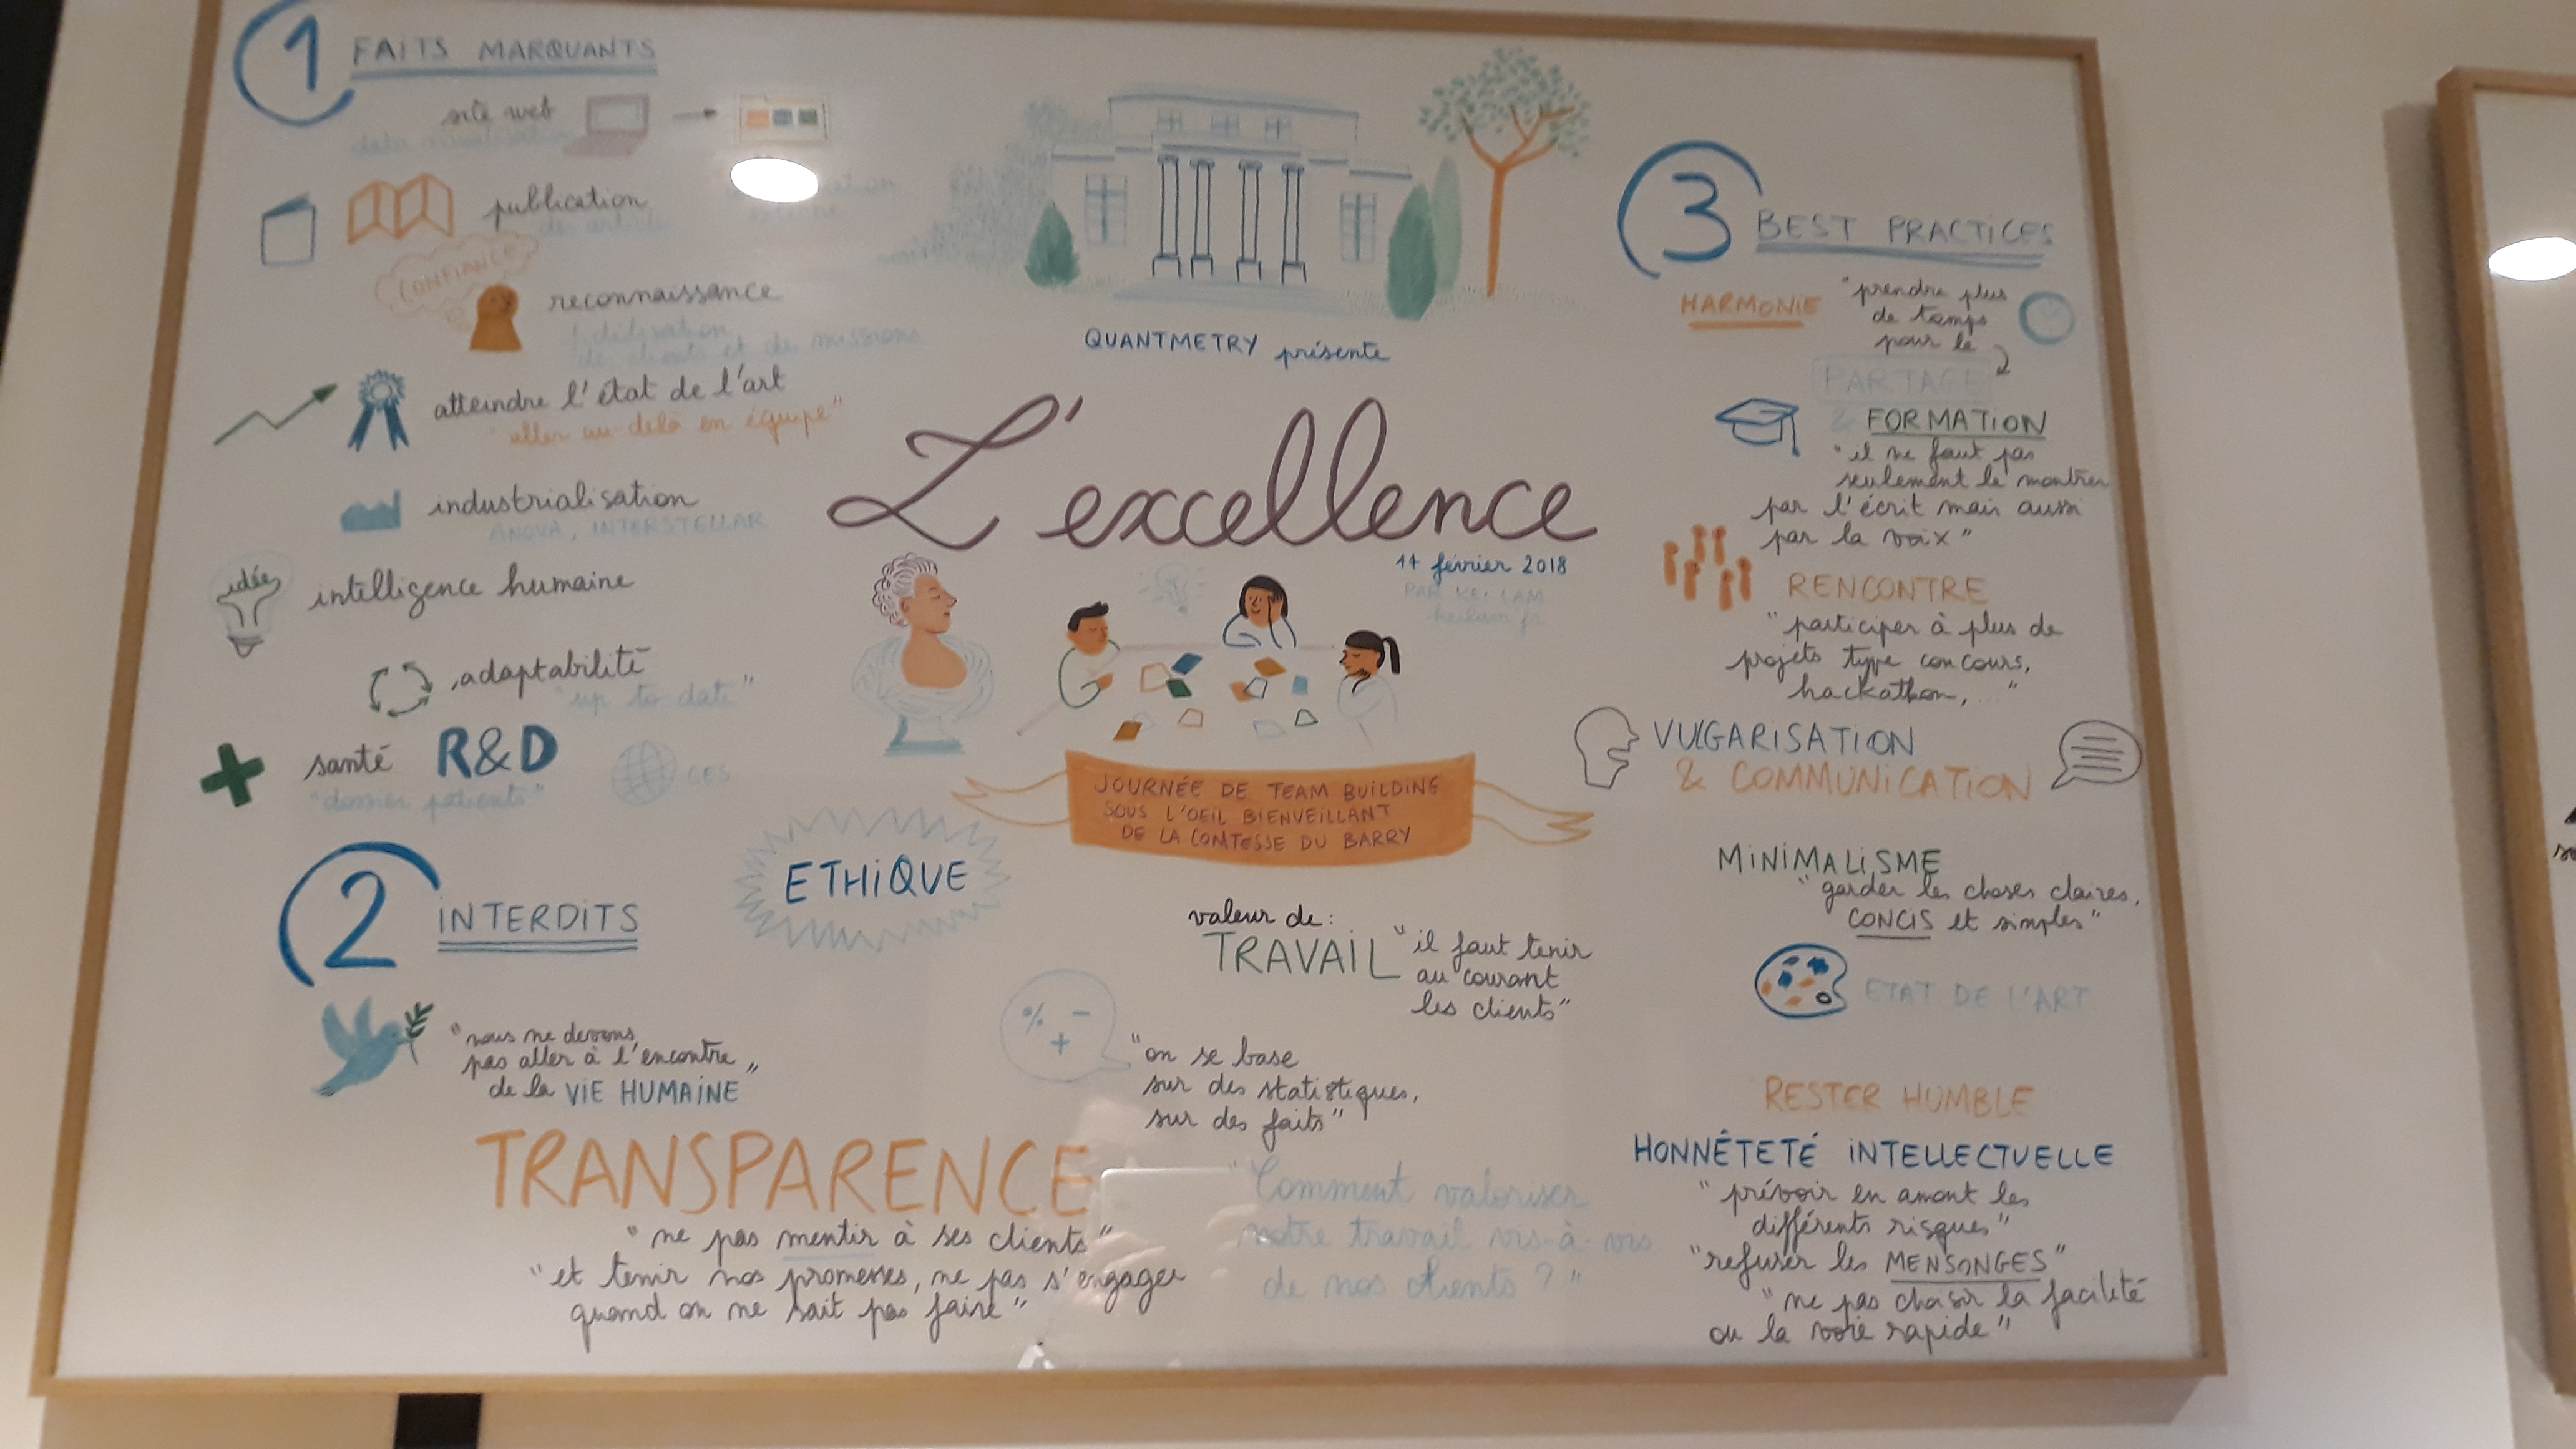 1 FAITS MARQUANTS
site web
data
publication
CONFIANCE
reconnaissance
de clients et des missions
atteindre l'état de l'art
"aller au-delà en équipe"
industrialisation
ANOVA, INTERSTELLAR
idée
intelligence humaine
adaptabilité
"up to date"
santé R&D
"dossier patients"
CES
QUANTMETRY présente
L'excellence
14 février 2018
PAR KEI LAM
keilam.fr
JOURNÉE DE TEAM BUILDING
SOUS L'OEIL BIENVEILLANT
DE LA COMTESSE DU BARRY
2 INTERDITS
ETHIQUE
"nous ne devons
pas aller à l'encontre
de la VIE HUMAINE"
valeur de:
TRAVAIL "il faut tenir
au courant
les clients"
% -
+
"on se base
sur des statistiques,
sur des faits"
TRANSPARENCE
"ne pas mentir à ses clients"
"et tenir nos promesses, ne pas s'engager
quand on ne sait pas faire"
"Comment valoriser
notre travail vis-à-vis
de nos clients ?"
3 BEST PRACTICES
HARMONIE "prendre plus
de temps
pour le
PARTAGE
& FORMATION
"il ne faut pas
seulement le montrer
par l'écrit mais aussi
par la voix"
RENCONTRE
"participer à plus de
projets type concours,
hackathon, ..."
VULGARISATION
& COMMUNICATION
MINIMALISME
"garder les choses claires,
CONCIS et simples"
ETAT DE L'ART
RESTER HUMBLE
HONNÊTETÉ INTELLECTUELLE
"prévoir en amont les
différents risques"
"refuser les MENSONGES"
"ne pas choisir la facilité
ou la voie rapide"